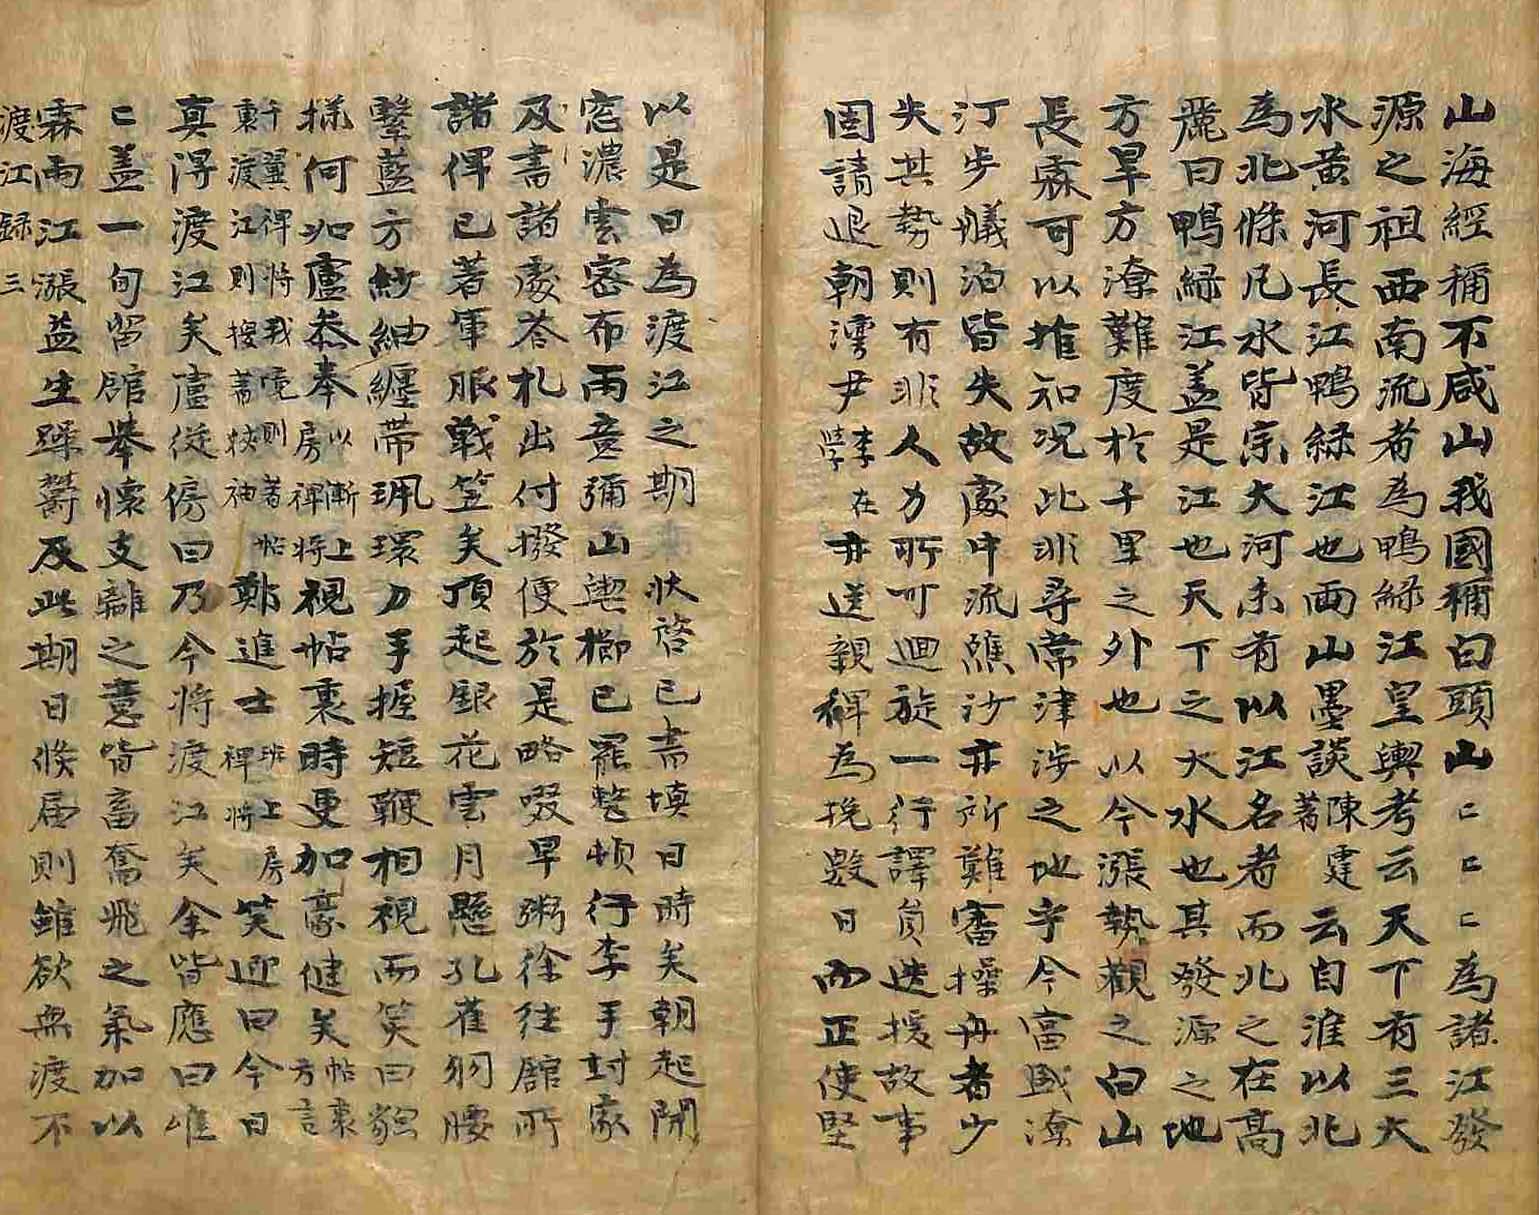 山海經稱不咸山我國稱白頭山〻〻〻為諸江發
源之祖西南流者為鴨綠江皇輿考云天下有三大
水黃河長江鴨綠江也兩山墨談陳霆著云自淮以北
為北條凡水皆宗大河未有以江名者而北之在高
麗曰鴨綠江盖是江也天下之大水也其發源之地
方旱方潦難度於千里之外也以今漲勢觀之白山
長霖可以推知況此非尋常津涉之地乎今當盛潦
汀步艤泊皆失故處中流礁沙亦所難審操舟者少
失其勢則有非人力所可廻旋一行譯員迭援故事
固請退朝灣尹李在學亦送親裨為挽數日而正使堅
以是日為渡江之期 狀啓已書填日時矣朝起開
窓濃雲密布雨意彌山盥櫛已罷整頓行李手封家
及書諸處荅札出付撥便於是略啜早粥徐往館所
諸俾已著軍服戰笠矣頂起銀花雲月懸孔雀羽腰
繫藍方紗紬纏帶珮環刀手握短鞭相視而笑曰貌
㨾何如盧叅奉以漸上房裨將視帖裏時更加豪健矣帖裏方言
千翼裨將我境則著帖裏渡江則換著狹袖鄭進士班上房裨將笑迎曰今日
真得渡江矣盧從傍曰乃今將渡江矣余皆應曰唯
〻盖一旬留館擧懷支離之意皆畜奮飛之氣加以
霖雨江漲益生躁鬱及此期日倏屆則雖欲無渡不
渡江錄 三